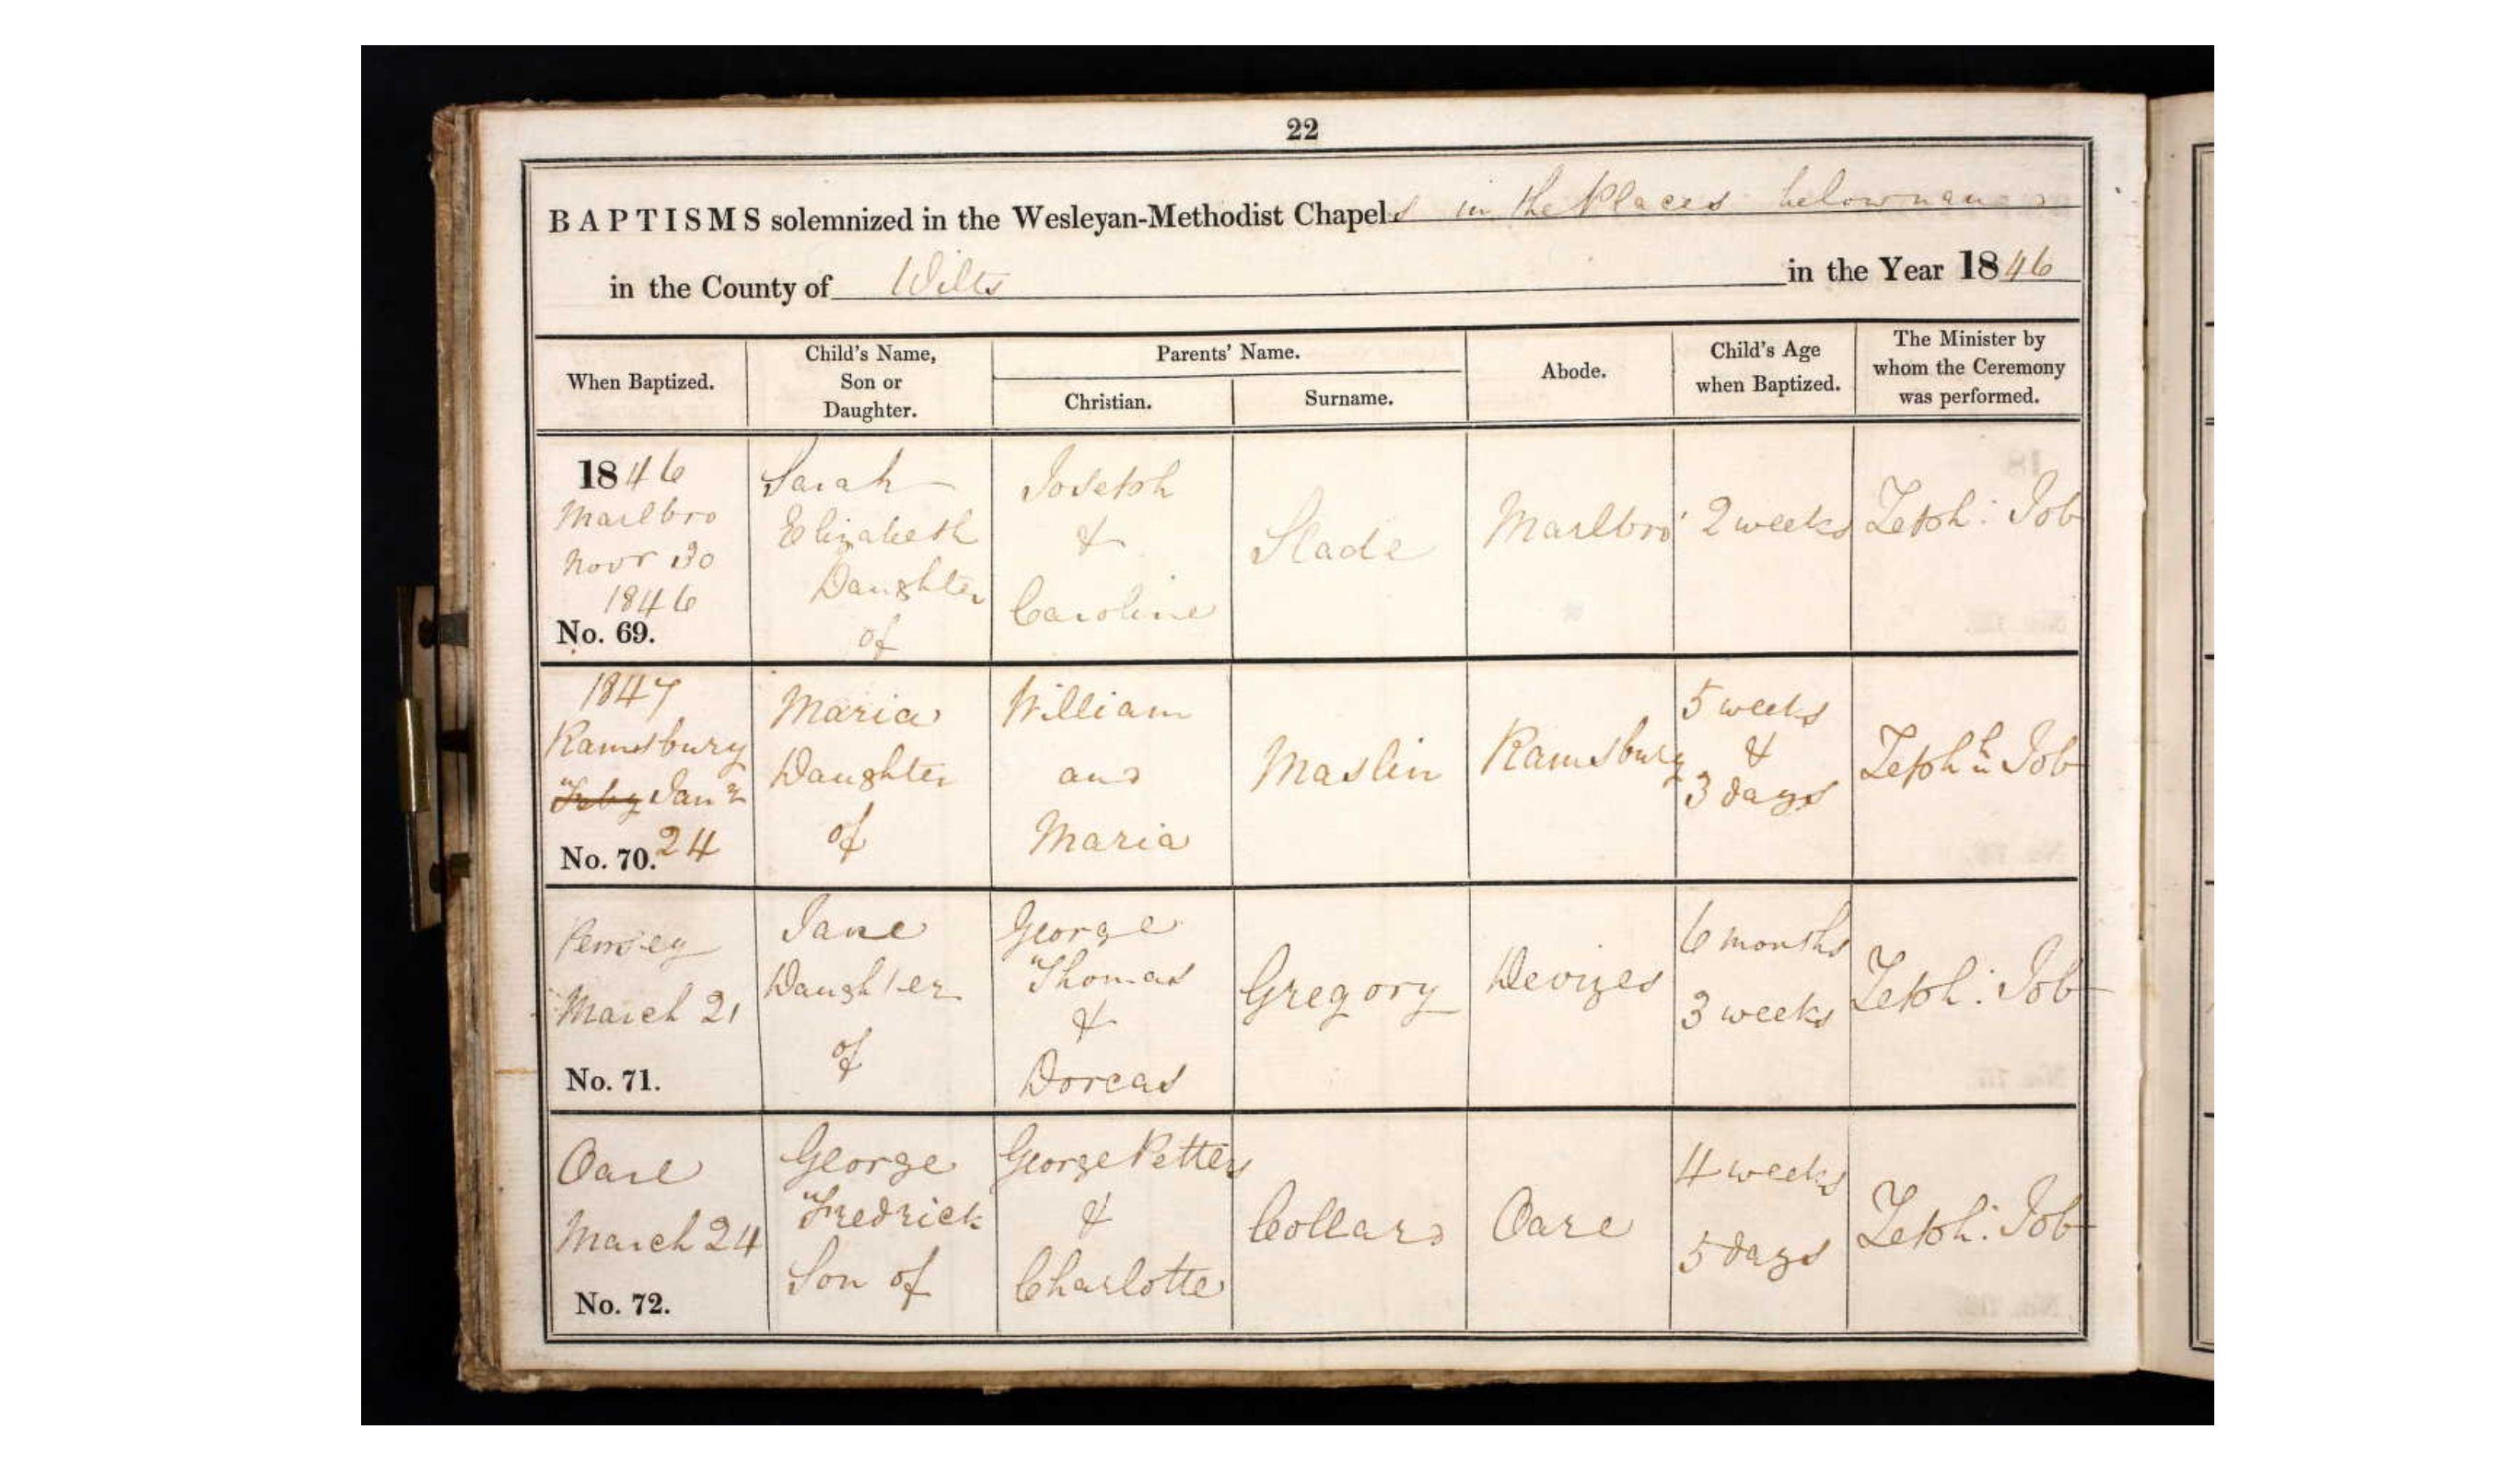 22
BAPTISMS solemnized in the Wesleyan-Methodist Chapels in the Places below nam
in the County of Wilts in the Year 1846
When Baptized.
Child's Name,
Son or
Daughter.
Parents' Name.
Christian.
Surname.
Abode.
Child's Age
when Baptized.
The Minister by
whom the Ceremony
was performed.
1846
Marlbro
Novr 30
1846
No. 69.
Sarah
Elizabeth
Daughter
of
Joseph
&
Caroline
Slade
Marlbro'
2 weeks
Zeph: Job
1847
Ramsbury
Feby Jany
24
No. 70.
Maria
Daughter
of
William
and
Maria
Maslin
Ramsbury
5 weeks
&
3 days
Zephh Job
Pewsey
March 21
No. 71.
Jane
Daughter
of
George
Thomas
&
Dorcas
Gregory
Devizes
6 months
3 weeks
Zeph: Job
Oare
March 24
No. 72.
George
Fredrick
Son of
George Petters
&
Charlotte
Collard
Oare
4 weeks
5 days
Zeph: Job